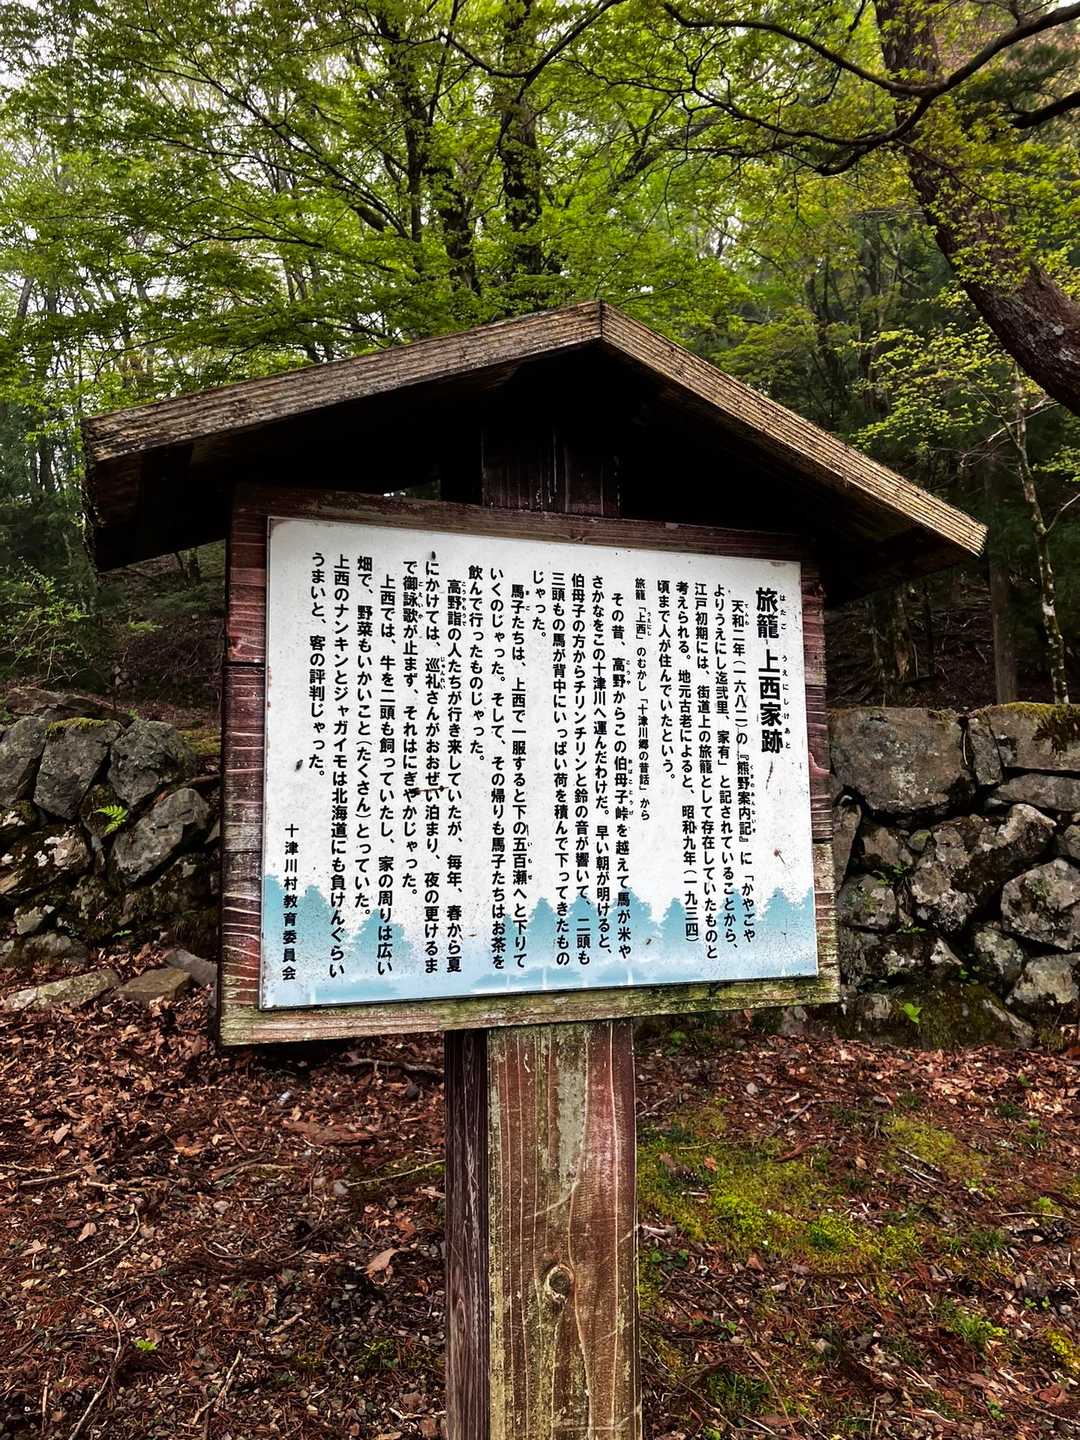 旅籠 上西家跡
天和二年(一六八二)の『熊野案内記』に「かやごや
よりうえにし迄弐里、家有」と記されていることから、
江戸初期には、街道上の旅籠として存在していたものと
考えられる。地元古老によると、昭和九年(一九三四)
頃まで人が住んでいたという。
旅籠「上西」のむかし「十津川郷の昔話」から
その昔、高野からこの伯母子峠を越えて馬が米や
さかなをこの十津川へ運んだわけだ。早い朝が明けると、
伯母子の方からチリンチリンと鈴の音が響いて、二頭も
三頭もの馬が背中にいっぱい荷を積んで下ってきたもの
じゃった。
馬子たちは、上西で一服すると下の五百瀬へと下りて
いくのじゃった。そして、その帰りも馬子たちはお茶を
飲んで行ったものじゃった。
高野詣の人たちが行き来していたが、毎年、春から夏
にかけては、巡礼さんがおおぜい泊まり、夜の更けるま
で御詠歌が止まず、それはにぎやかじゃった。
上西では、牛を二頭も飼っていたし、家の周りは広い
畑で、野菜もいかいこと(たくさん)とっていた。
上西のナンキンとジャガイモは北海道にも負けんぐらい
うまいと、客の評判じゃった。
十津川村教育委員会